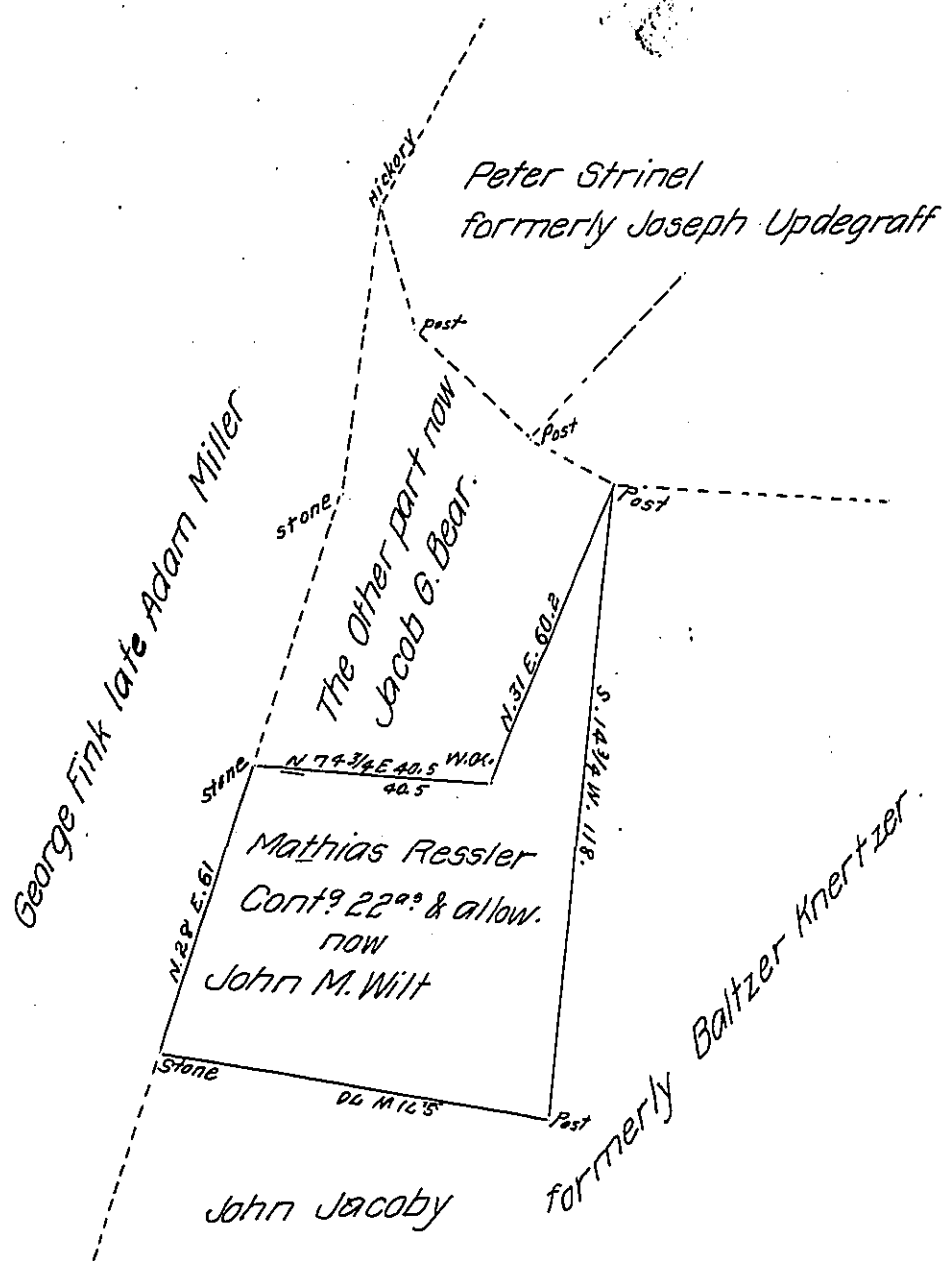 Hickory
Peter Strinel
formerly Joseph Updegraff
Post
Post
Post
George Fink late Adam Miller
stone
The Other part now
Jacob G. Bear.
N. 31 E. 60.2
S. 14 3/4 W. 118.
stone
N 74 3/4 E 40.5
W.OK.
40.5
Mathias Ressler
Contg. 22as. & allow.
now
John M. Wilt
N. 28 E. 61
Stone
S. 71 W. 70
Post
formerly Baltzer Knertzer.
John Jacoby